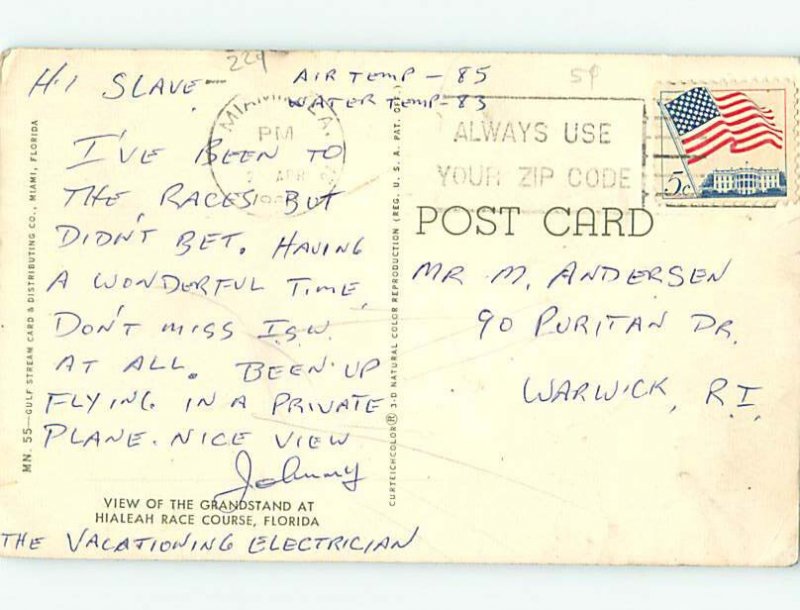 224
HI SLAVE—
AIR TEMP - 85
WATER TEMP - 83
5¢
MIAMI, FLA.
PM
APR
ALWAYS USE
YOUR ZIP CODE
5c
I'VE BEEN TO
THE RACES BUT
DIDN'T BET. HAVING
A WONDERFUL TIME,
DON'T MISS I.S.W.
AT ALL. BEEN UP
FLYING IN A PRIVATE
PLANE. NICE VIEW
Johnny
VIEW OF THE GRANDSTAND AT
HIALEAH RACE COURSE, FLORIDA
THE VACATIONING ELECTRICIAN
MN. 55—GULF STREAM CARD & DISTRIBUTING CO., MIAMI, FLORIDA
CURTEICHCOLOR® 3-D NATURAL COLOR REPRODUCTION (REG. U. S. A. PAT. OFF.)
POST CARD
MR M. ANDERSEN
90 PURITAN DR.
WARWICK, R.I.